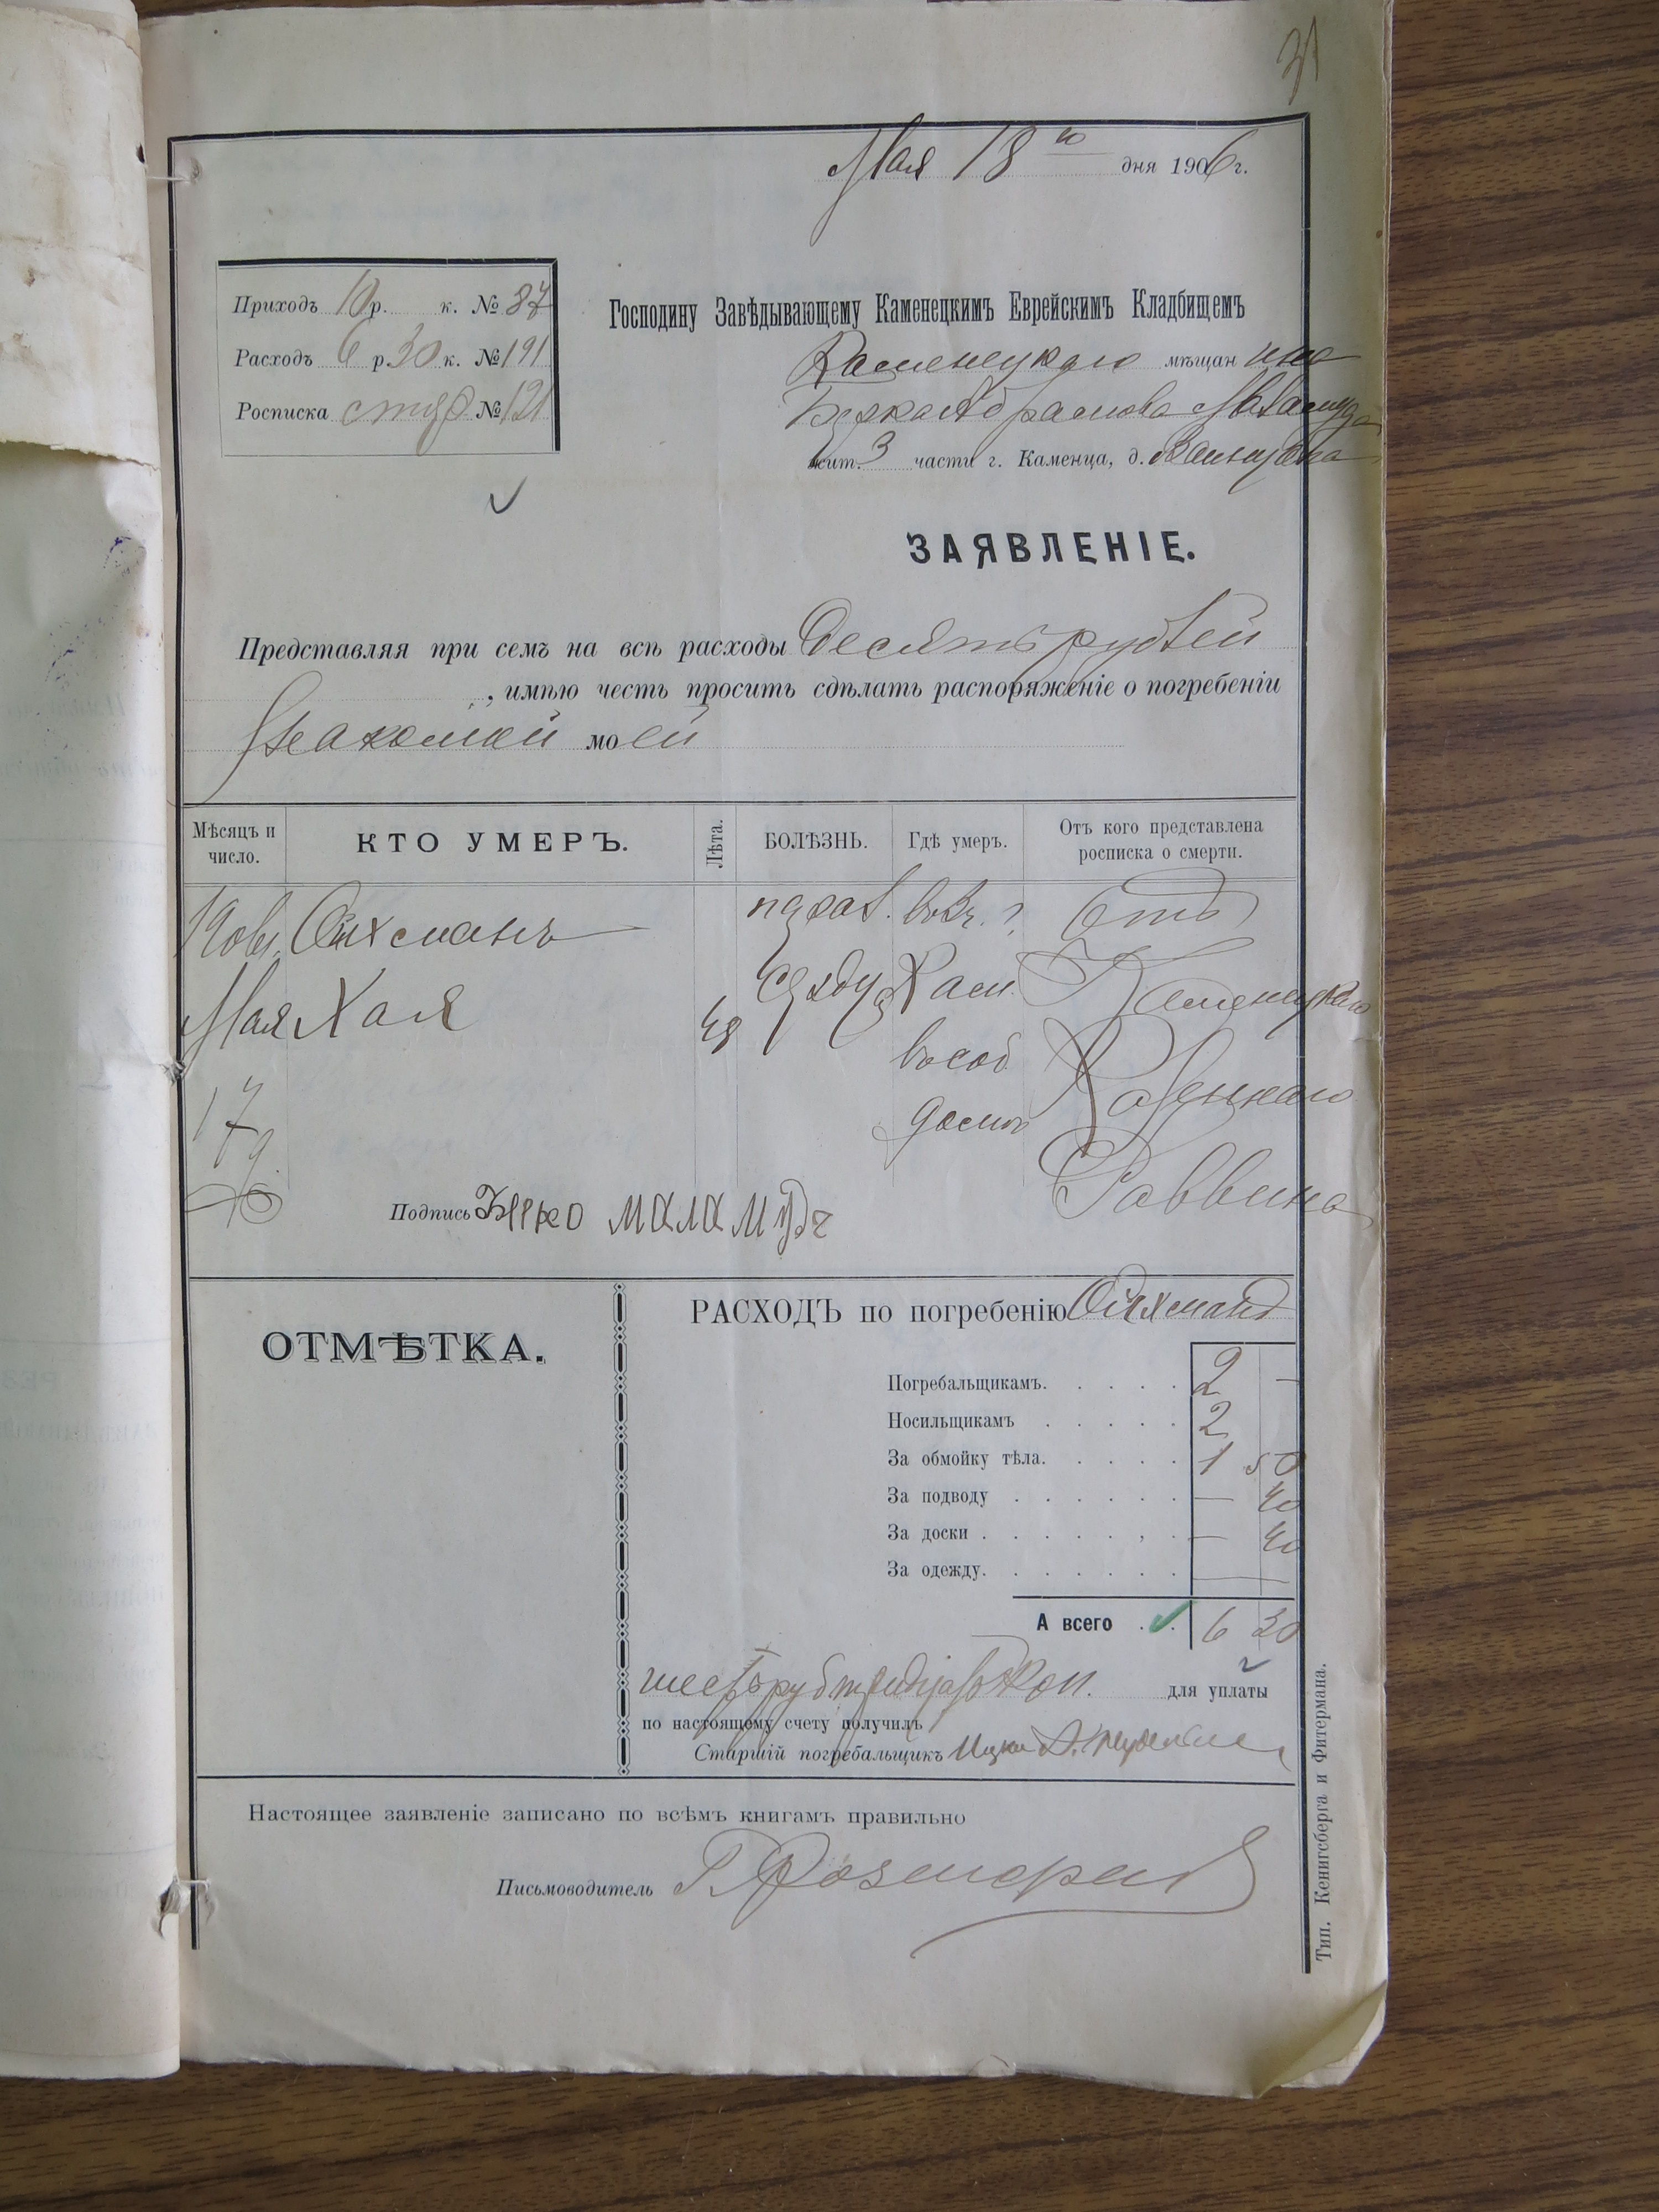 31
Мая 18го дня 1906 г.
Приходъ 10 р. к. № 37
Расходъ 6 р 30 к. № 191
Росписка № 121
Господину Завѣдывающему Каменецкимъ Еврейскимъ Кладбищемъ
Каменецкаго мѣщан ина
Берка Абрамова Маламуда
жит. 3 части г. Каменца, д.
ЗАЯВЛЕНІЕ.
Представляя при семъ на всѣ расходы Десять рублей
, имѣю честь просить сдѣлать распоряженіе о погребеніи
Знакомой мо ей
Мѣсяцъ и число.
КТО УМЕРЪ.
Лѣта.
БОЛѢЗНЬ.
Гдѣ умеръ.
Отъ кого представлена росписка о смерти.
Мая 17 д.
Ойхманъ
Хая
48
парал. сердца
въ 3 ч. г. Кам. въ соб домѣ
Отъ Каменецкаго Казеннаго Раввина
Подпись Берко Маламудъ
ОТМѢТКА.
РАСХОДЪ по погребенію Ойхманъ
Погребальщикамъ. . . . . 2 —
Носильщикамъ . . . . . 2
За обмойку тѣла. . . . . 1 50
За подводу . . . . . . — 40
За доски . . . . . . — 40
За одежду. . . . . . . —
А всего . . 6 30
шесть руб тридцать коп. для уплаты
по настоящему счету получилъ
Старшій погребальщикъ Ицко
Настоящее заявленіе записано по всѣмъ книгамъ правильно
Письмоводитель
Тип. Кенигсберга и Фитермана.